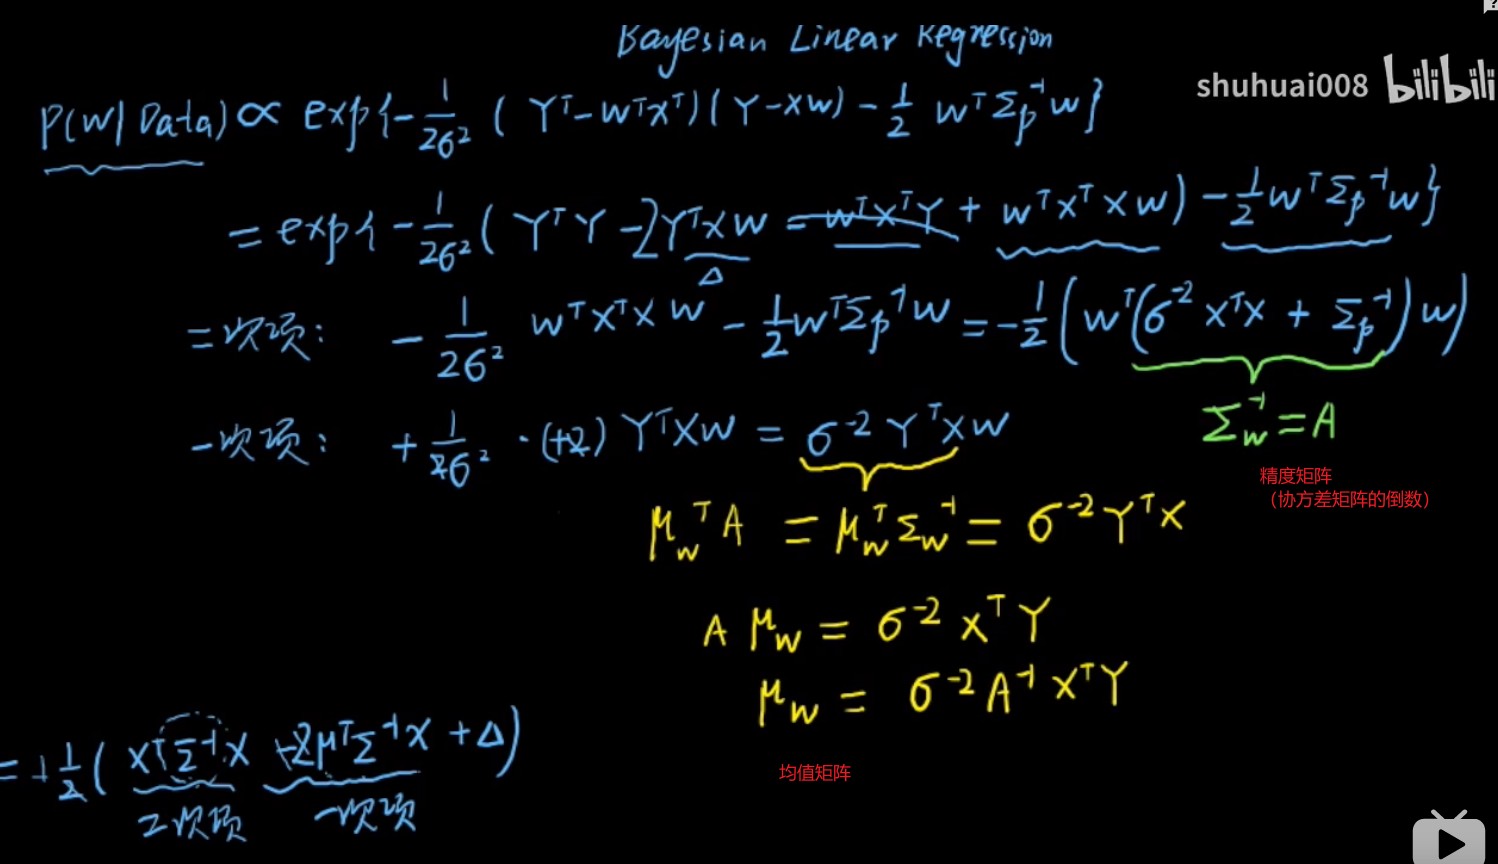 Bayesian Linear Regression
shuhuai008 bilibili
P(w|Data) ∝ exp{-1/2σ² (Yᵀ-wᵀXᵀ)(Y-Xw) - 1/2 wᵀΣp⁻¹w}
= exp{-1/2σ² (YᵀY - 2YᵀXw - wᵀXᵀY + wᵀXᵀXw) - 1/2 wᵀΣp⁻¹w}
Δ
二次项: -1/2σ² wᵀXᵀXw - 1/2 wᵀΣp⁻¹w = -1/2 (wᵀ(σ⁻²XᵀX + Σp⁻¹)w)
Σw⁻¹ = A
一次项: +1/2σ² · (+2) YᵀXw = σ⁻²YᵀXw
精度矩阵
（协方差矩阵的倒数）
μwᵀA = μwᵀΣw⁻¹ = σ⁻²YᵀX
Aμw = σ⁻²XᵀY
μw = σ⁻²A⁻¹XᵀY
= -1/2 (xᵀΣ⁻¹x - 2μᵀΣ⁻¹x + Δ)
2次项 一次项
均值矩阵